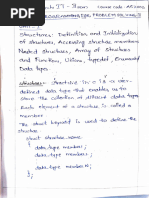 Unit-I
Structures: Definition and Initialization
of structures, Accessing structure members
Nested Structures, Array of structures
and function, Unions, typedef, Enumerated
Data types.
Structure: Structure in C is a user
derived data type that enables us to
store the collection of different data types
Each element of a structure is called
a member.
The struct keyword is used to define the
structure.
struct structure_name
{
data_type member1;
data_type member2;
data_type memberN;
};